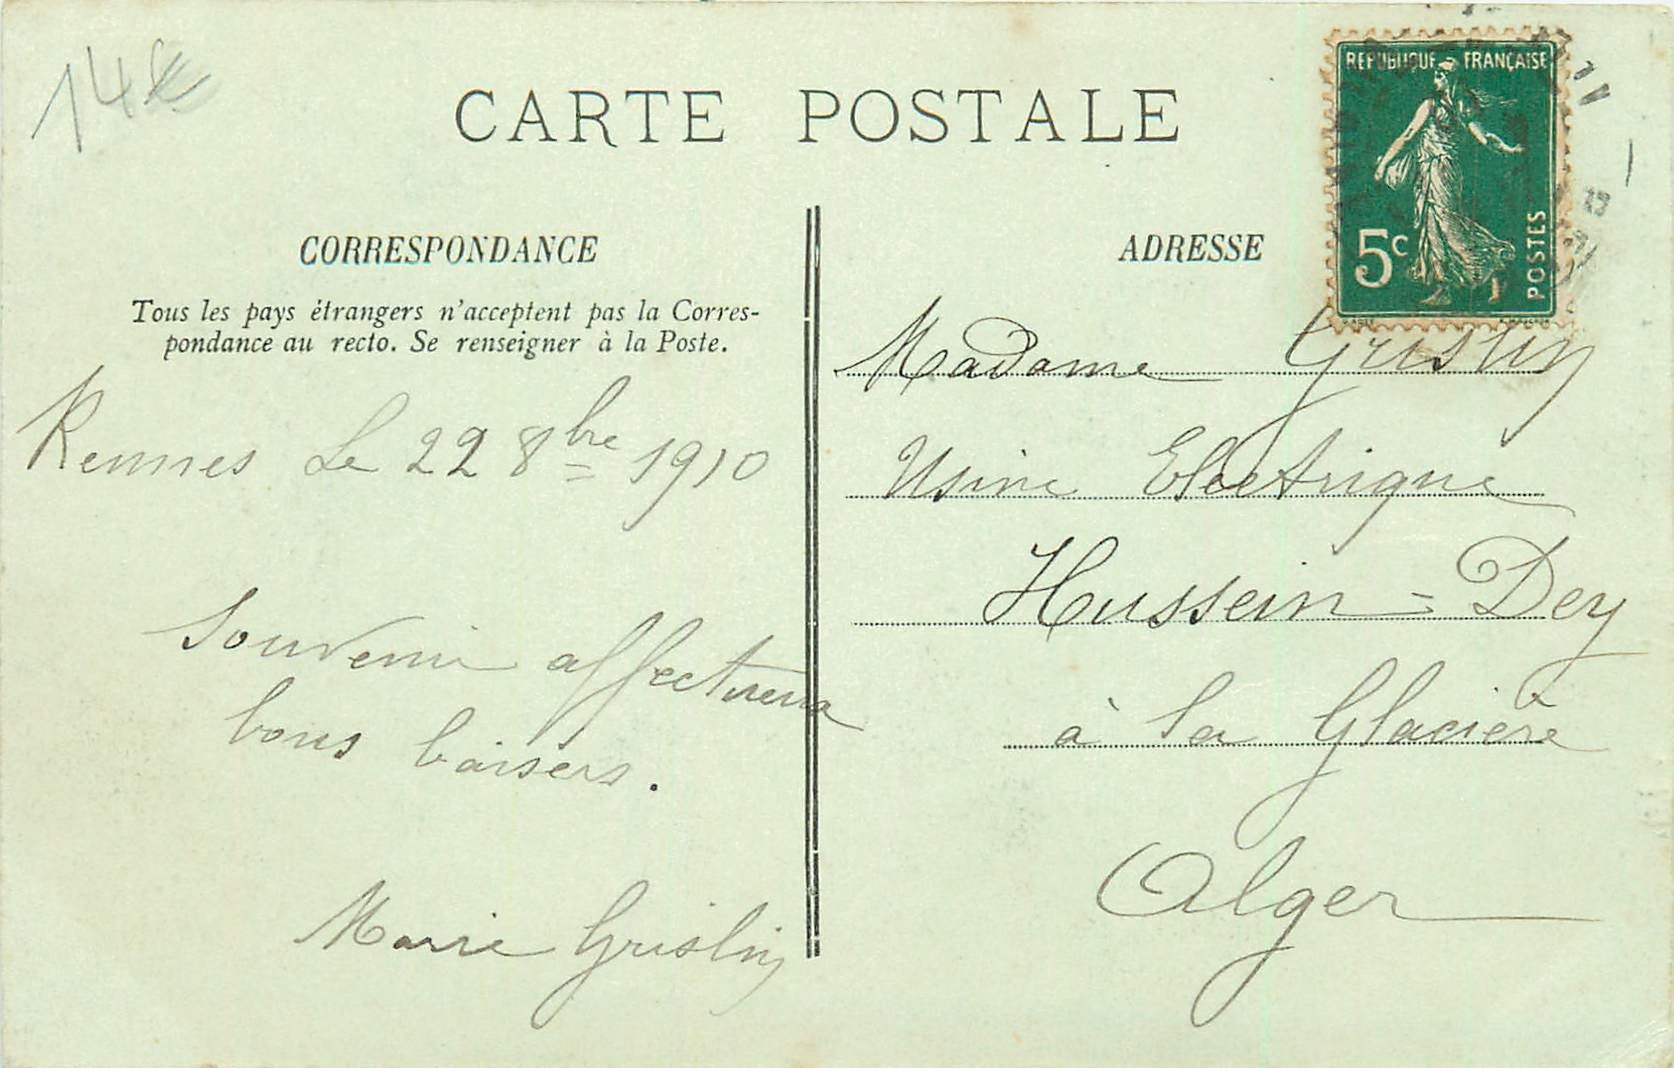 14€
CARTE POSTALE
REPUBLIQUE FRANÇAISE
5c
POSTES
CORRESPONDANCE
Tous les pays étrangers n'acceptent pas la Corres-
pondance au recto. Se renseigner à la Poste.
Rennes le 22 8bre 1910
Souvenir affectueux
bons baisers.
Marie Grislin
ADRESSE
Madame Grislin
Usine Electrique
Hussein=Dey
à la Glacière
Alger